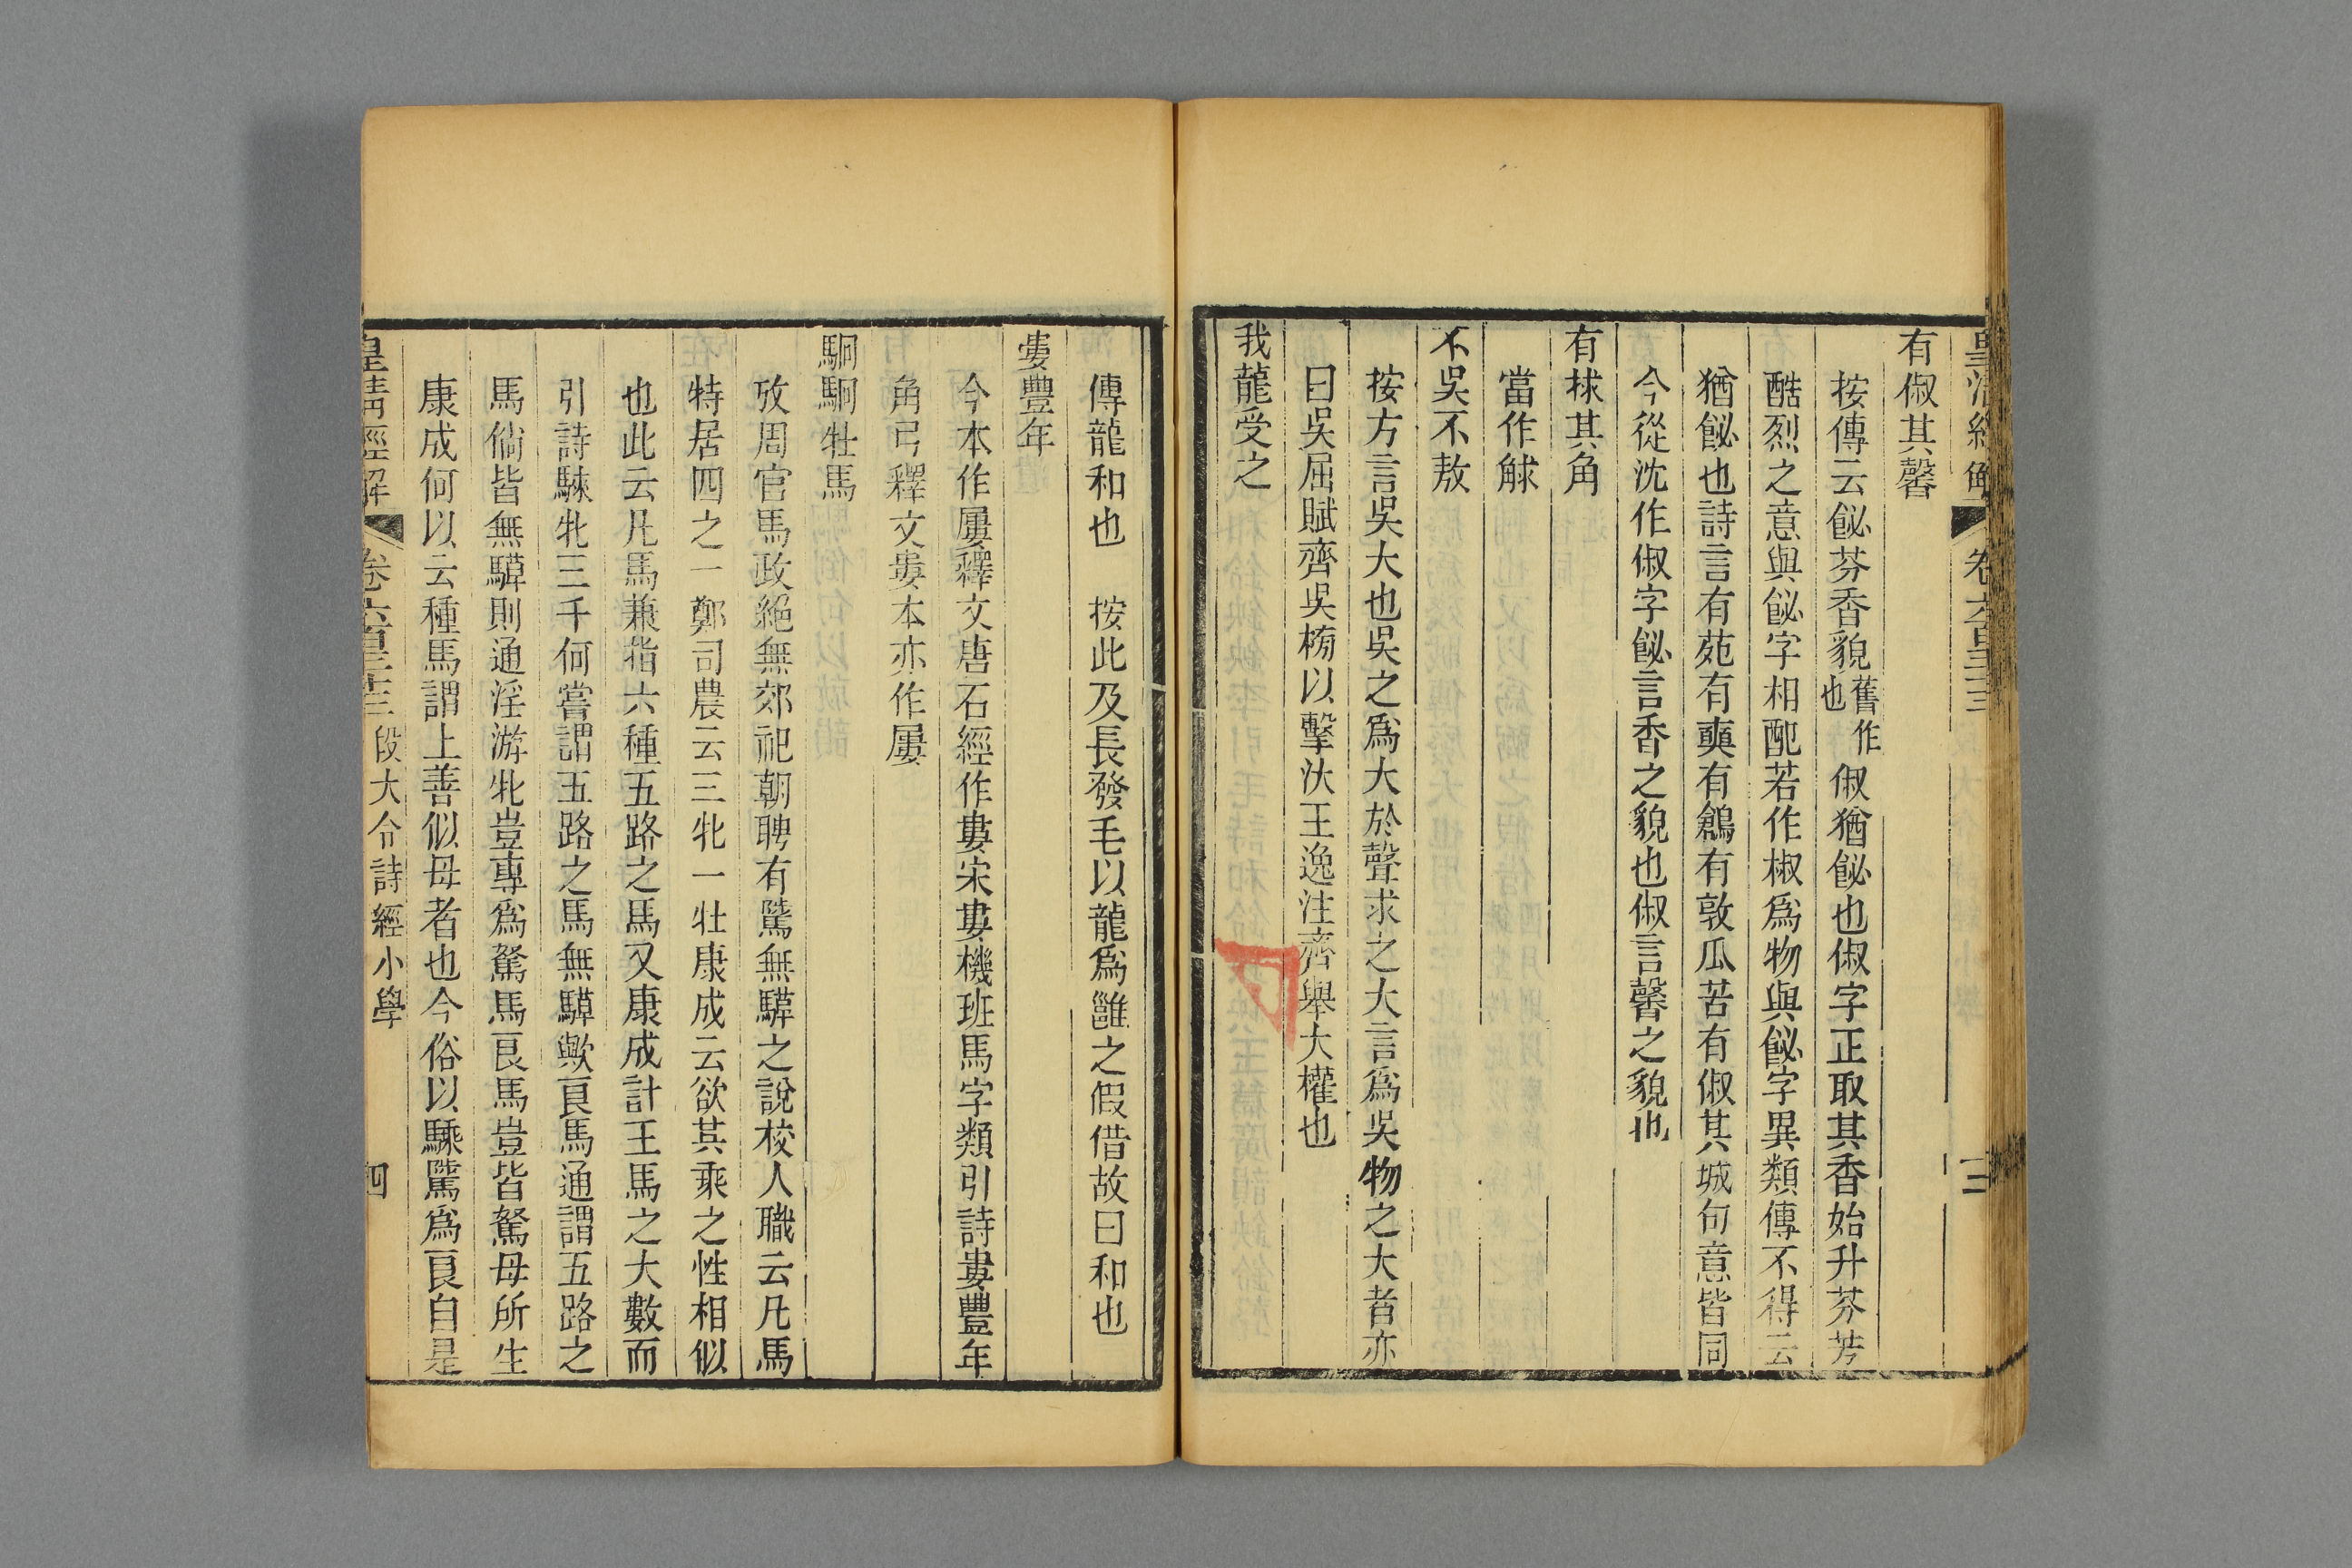 皇清經解 卷六百三十三 三
有俶其馨
按傳云飶芬香貌也舊作俶猶飶也俶字正取其香始升芬芳
酷烈之意與飶字相配若作椒爲物與飶字異類傳不得云
猶飶也詩言有苑有奭有鶬有敦瓜苦有俶其城句意皆同
今從沈作俶字飶言香之貌也俶言馨之貌也
有捄其角
當作觩
不吳不敖
按方言吳大也吳之爲大於聲求之大言爲吳物之大者亦
曰吳屈賦齊吳榜以擊汏王逸注齊舉大櫂也
我龍受之
傳龍和也 按此及長發毛以龍爲雝之假借故曰和也
婁豐年
今本作屢釋文唐石經作婁宋婁機班馬字類引詩婁豐年
角弓釋文婁本亦作屢
駉駉牡馬
攷周官馬政絕無郊祀朝聘有騭無騲之說校人職云凡馬
特居四之一鄭司農云三牝一牡康成云欲其乘之性相似
也此云凡馬兼指六種五路之馬又康成計王馬之大數而
引詩騋牝三千何嘗謂五路之馬無騲歟良馬通謂五路之
馬倘皆無騲則通淫游牝豈專爲駑馬良馬豈皆駑母所生
康成何以云種馬謂上善似母者也今俗以騬騭爲良自是
皇清經解 卷六百三十三 段大令詩經小學 四